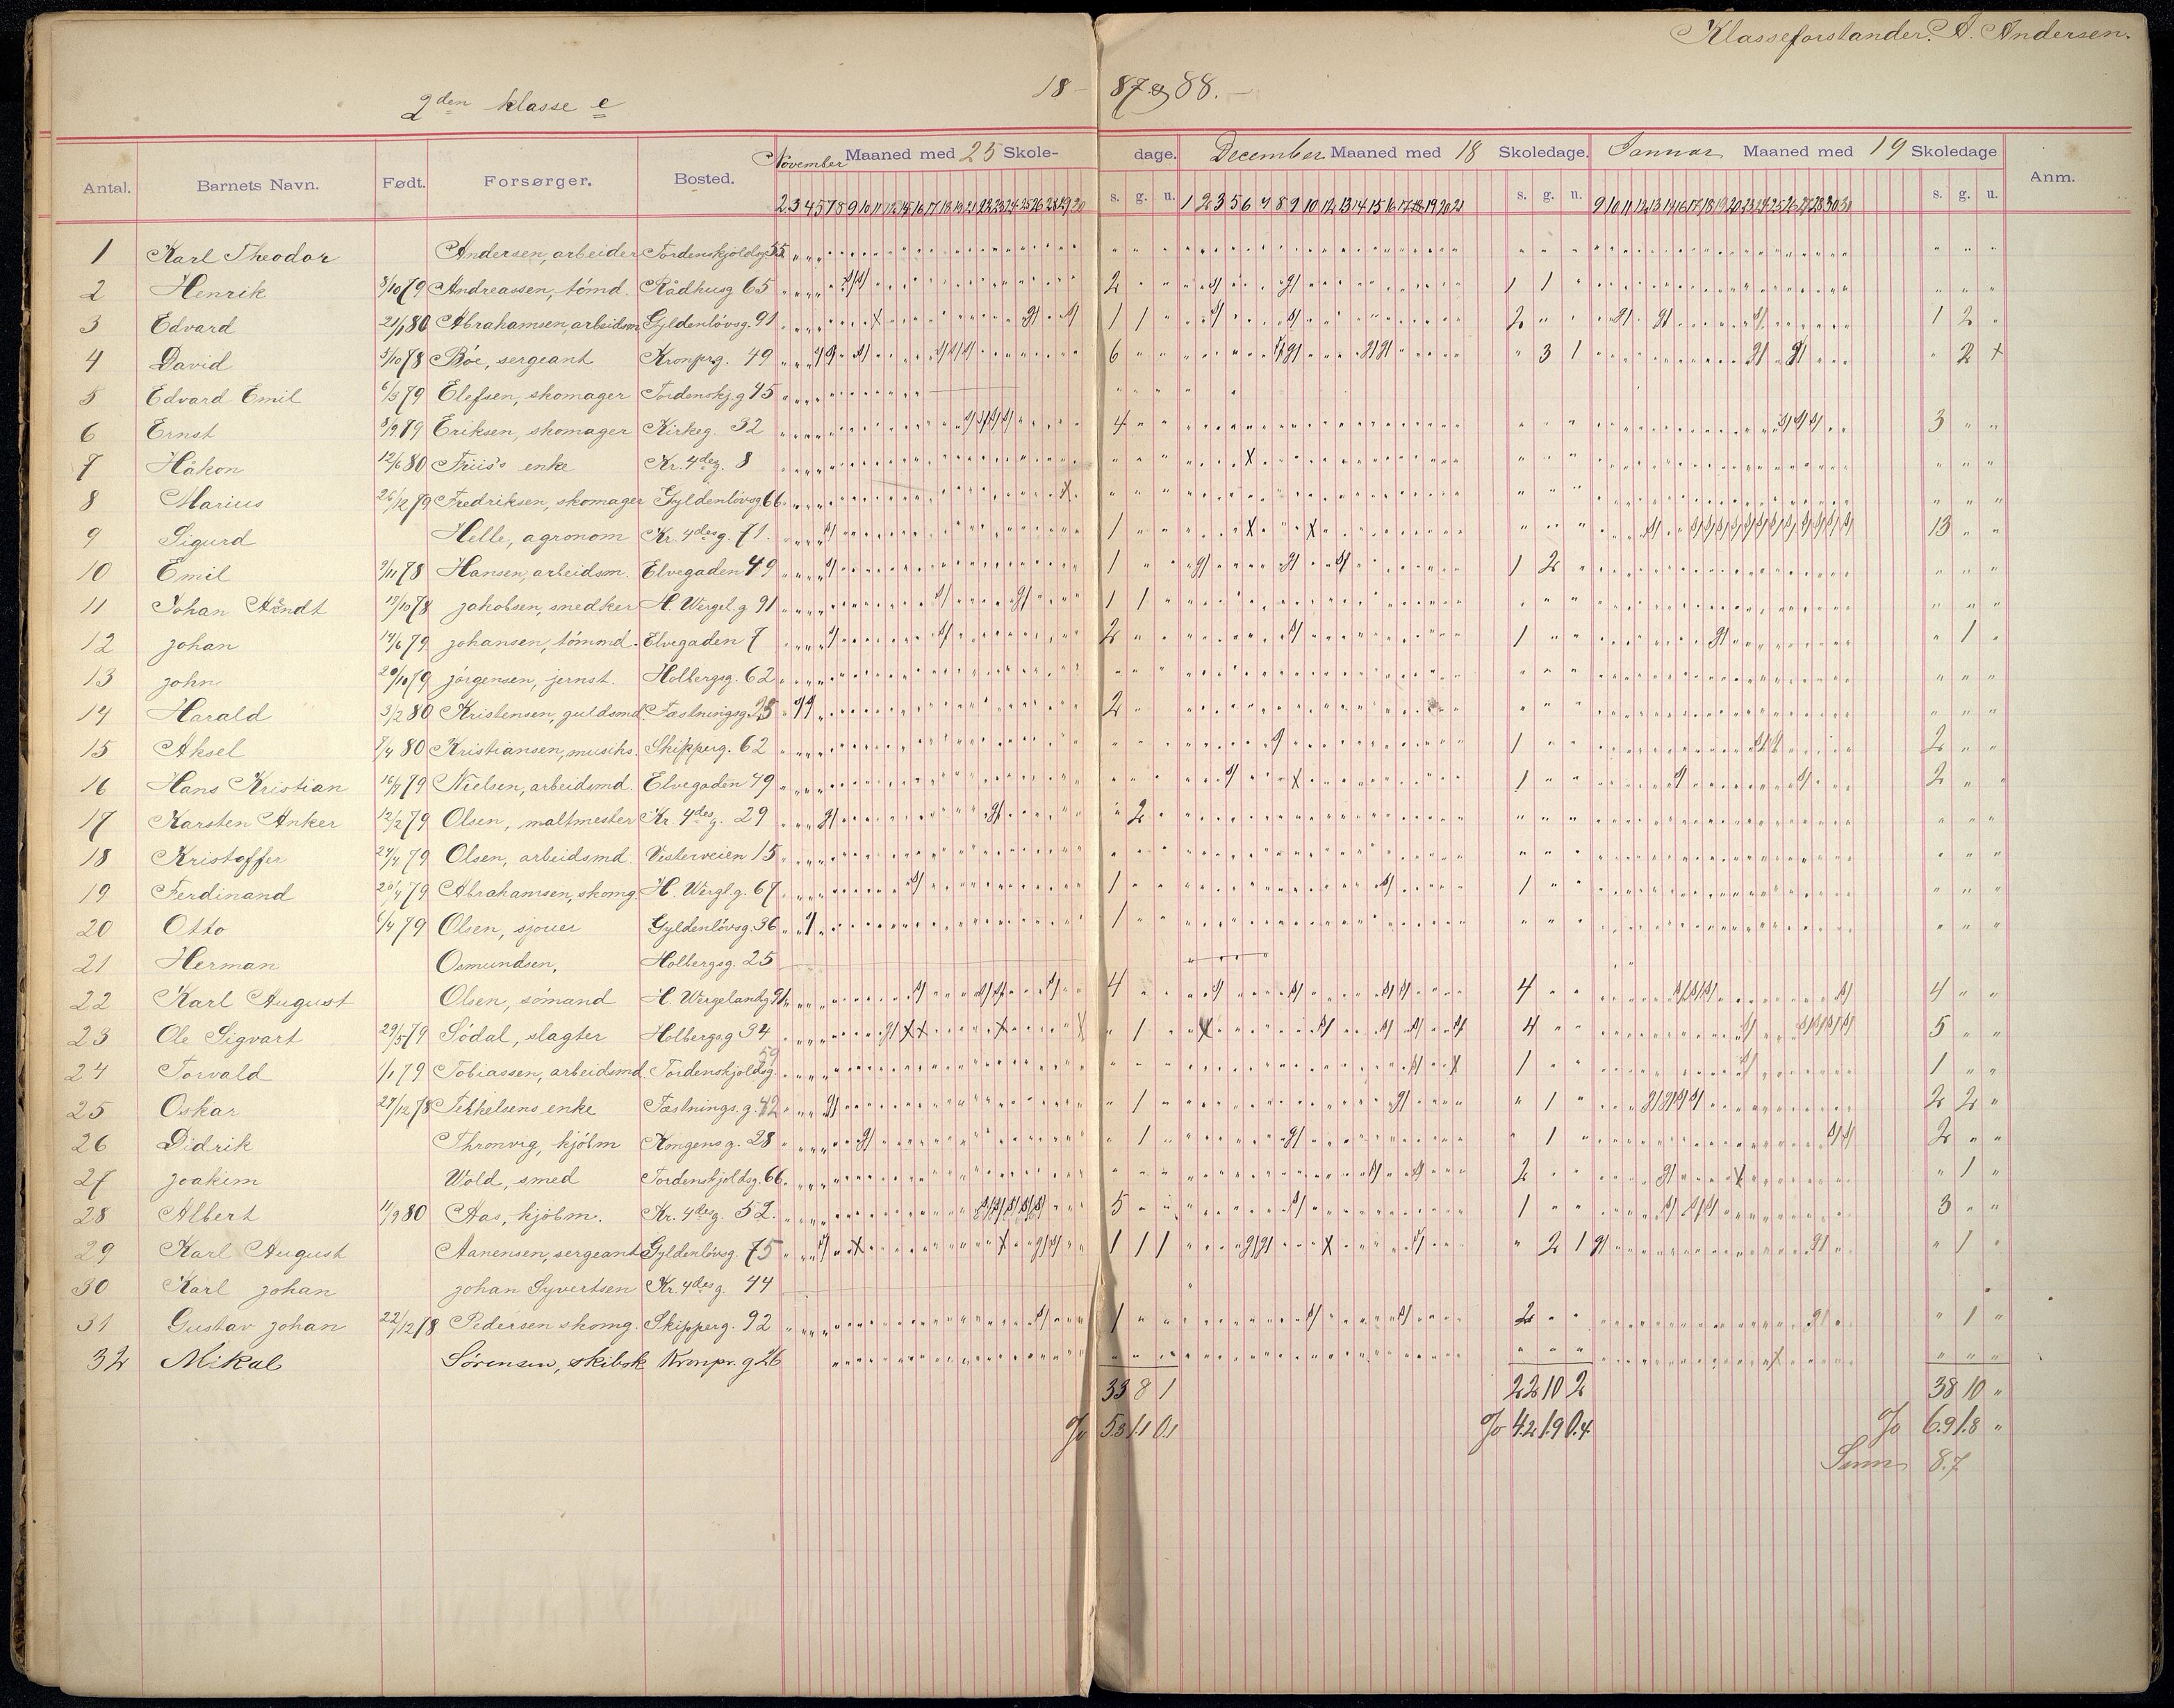 Klasseforstander: A. Andersen.
2den klasse e 18 - 87 & 88. -
November Maaned med 25 Skole- dage. December Maaned med 18 Skoledage. Januar Maaned med 19 Skoledage
Antal. Barnets Navn. Født. Forsørger. Bosted. s. g. u. s. g. u. s. g. u. Anm.
1 Karl Theodor Andersen, arbeider Tordenskjoldsg 55
2 Henrik 8/10 79 Andreassen, tömd. Rådhusg 65 2 " " 1 1 " " " "
3 Edvard 21/1 80 Abrahamsen, arbeidsm Gyldenlövsg. 91 1 1 " 2 " " 1 2 "
4 David 5/10 78 Böe, sergeant Kronprg. 49 6 " " " 3 1 " 2 +
5 Edvard Emil 6/3 79 Elefsen, skomager Tordenskj.g 45
6 Ernst 8/9 79 Eriksen, skomager Kirkeg. 32 4 " " " " " 3 " "
7 Håkon 12/6 80 Friis's enke Kr. 4des g. 8
8 Marius 26/12 79 Fredriksen, skomager Gyldenlövsg 66
9 Sigurd Helle, agronom Kr. 4des g. 71. 1 " " " " " 13 " "
10 Emil 9/11 78 Hansen, arbeidsm. Elvegaden 49 1 " " 1 2 " " " "
11 Johan Arndt 19/10 78 jakobsen, snedker H. Wergel.g 91 1 1 " " " " " " "
12 johan 14/6 79 johansen, tömmd. Elvegaden 7 2 " " 1 " " " 1 "
13 john 20/10 79 jörgensen, jernst. Holbergsg. 62
14 Harald 3/2 80 Kristensen, guldsmd. Fæstningsg. 25 2 "
15 Aksel 7/4 80 Kristiansen, musiks. Skipperg. 62 " " " 1 " " 2 " "
16 Hans Kristian 16/7 79 Nielsen, arbeidsmd. Elvegaden 49 " " " 1 " " 2 " "
17 Karsten Anker 12/2 79 Olsen, maltmester Kr. 4des g. 29 " 2 " " " " " " "
18 Kristoffer 24/4 79 Olsen, arbeidsmd. Vesterveien 15
19 Ferdinand 20/4 79 Abrahamsen, skomg. H. Wergl.g. 67 1 " " 1 " " " " "
20 Otto 6/4 79 Olsen, sjouer Gyldenlövsg. 36 1 " " " " " " " "
21 Herman Osmundsen, Holbergsg. 25
22 Karl August Olsen, sömand H. Wergelandsg 91 4 " " 4 " " 4 " "
23 Ole Sigvart 29/5 79 Södal, slagter Holbergsg 34 " 1 " 4 " " 5 " "
24 Torvald 1/1 79 Tobiassen, arbeidsmd. Tordenskjoldsg. 59 " " " 1 " " 1 " "
25 Oskar 27/12 78 Terkelsens enke Fæstnings.g. 42 " 1 " " 1 " 2 2 "
26 Didrik Thronvig, kjöbm Kongensg. 28 " 1 " " 1 " 2 " "
27 joakim Wold, smed Tordenskjoldsg. 66 " " " 2 " " " 1 "
28 Albert 11/9 80 Aas, kjöbm. Kr. 4des g. 52. 5 " " 1 " " 3 " "
29 Karl August Aanensen, sergeant Gyldenlövsg. 75 1 1 1 " 2 1 " 1 "
30 Karl johan johan Syvertsen Kr. 4des g. 44
31 Gustav johan 22/12 78 Pedersen skomg. Skipperg. 92 1 " " 2 " " " 1 "
32 Mikal Sörensen, skibsk Kronpr. g 26
33 8 1 22 10 2 38 10 "
% 5.3 1.1 0.1 % 4.2 1.9 0.4 % 6.9 1.8 "
Sum 8.7